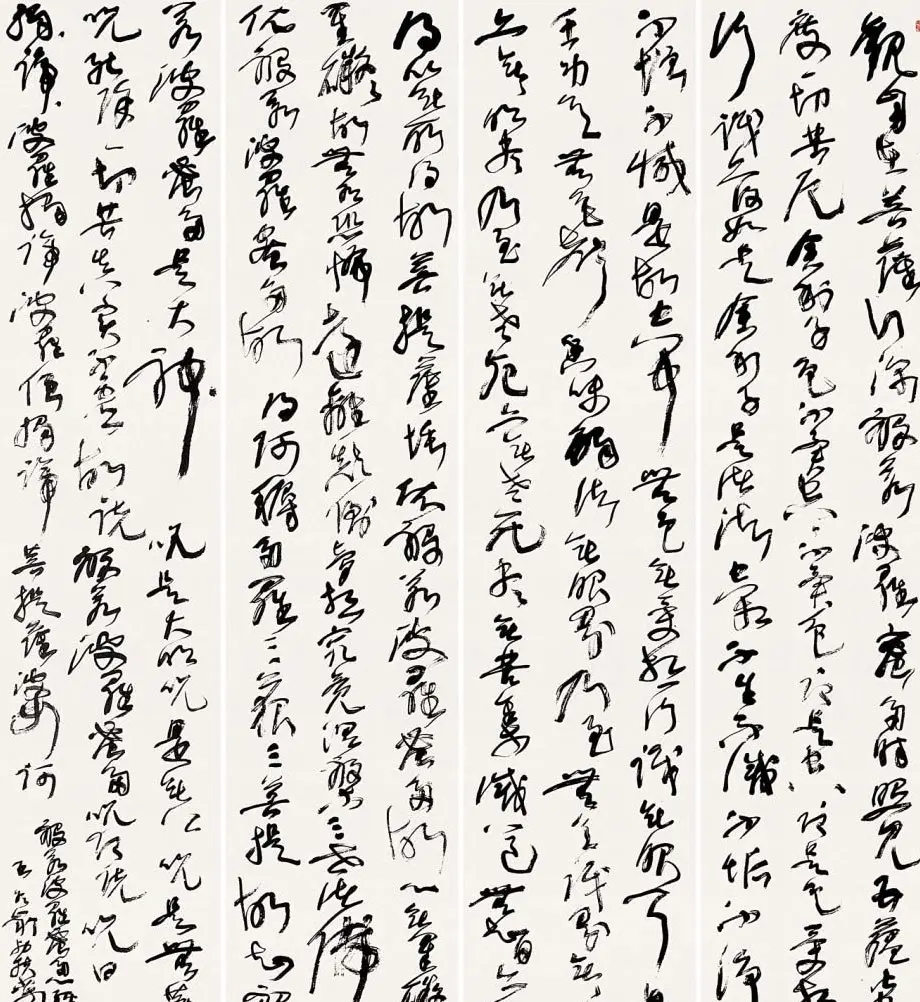 觀自在菩薩行深般若波羅蜜多時照見五蘊皆
度一切苦厄舍利子色不異空空不異色色即是空空即是色受想
行識亦復如是舍利子是諸法空相不生不滅不垢不淨
不增不減是故空中無色無受想行識無眼耳
無色聲香味觸法無眼界乃至無意識界無
亦無明盡乃至無老死亦無老死盡無苦集滅道無智亦
得以無所得故菩提薩埵依般若波羅蜜多故心無罣礙
罣礙故無有恐怖遠離顛倒夢想究竟涅槃三世諸佛
依般若波羅蜜多故得阿耨多羅三藐三菩提故知般
若波羅蜜多是大神咒是大明咒是無上咒是無等
咒能除一切苦真實不虛故說般若波羅蜜多咒即說咒曰
揭諦波羅揭諦波羅僧揭諦菩提薩婆訶
般若波羅蜜多心經